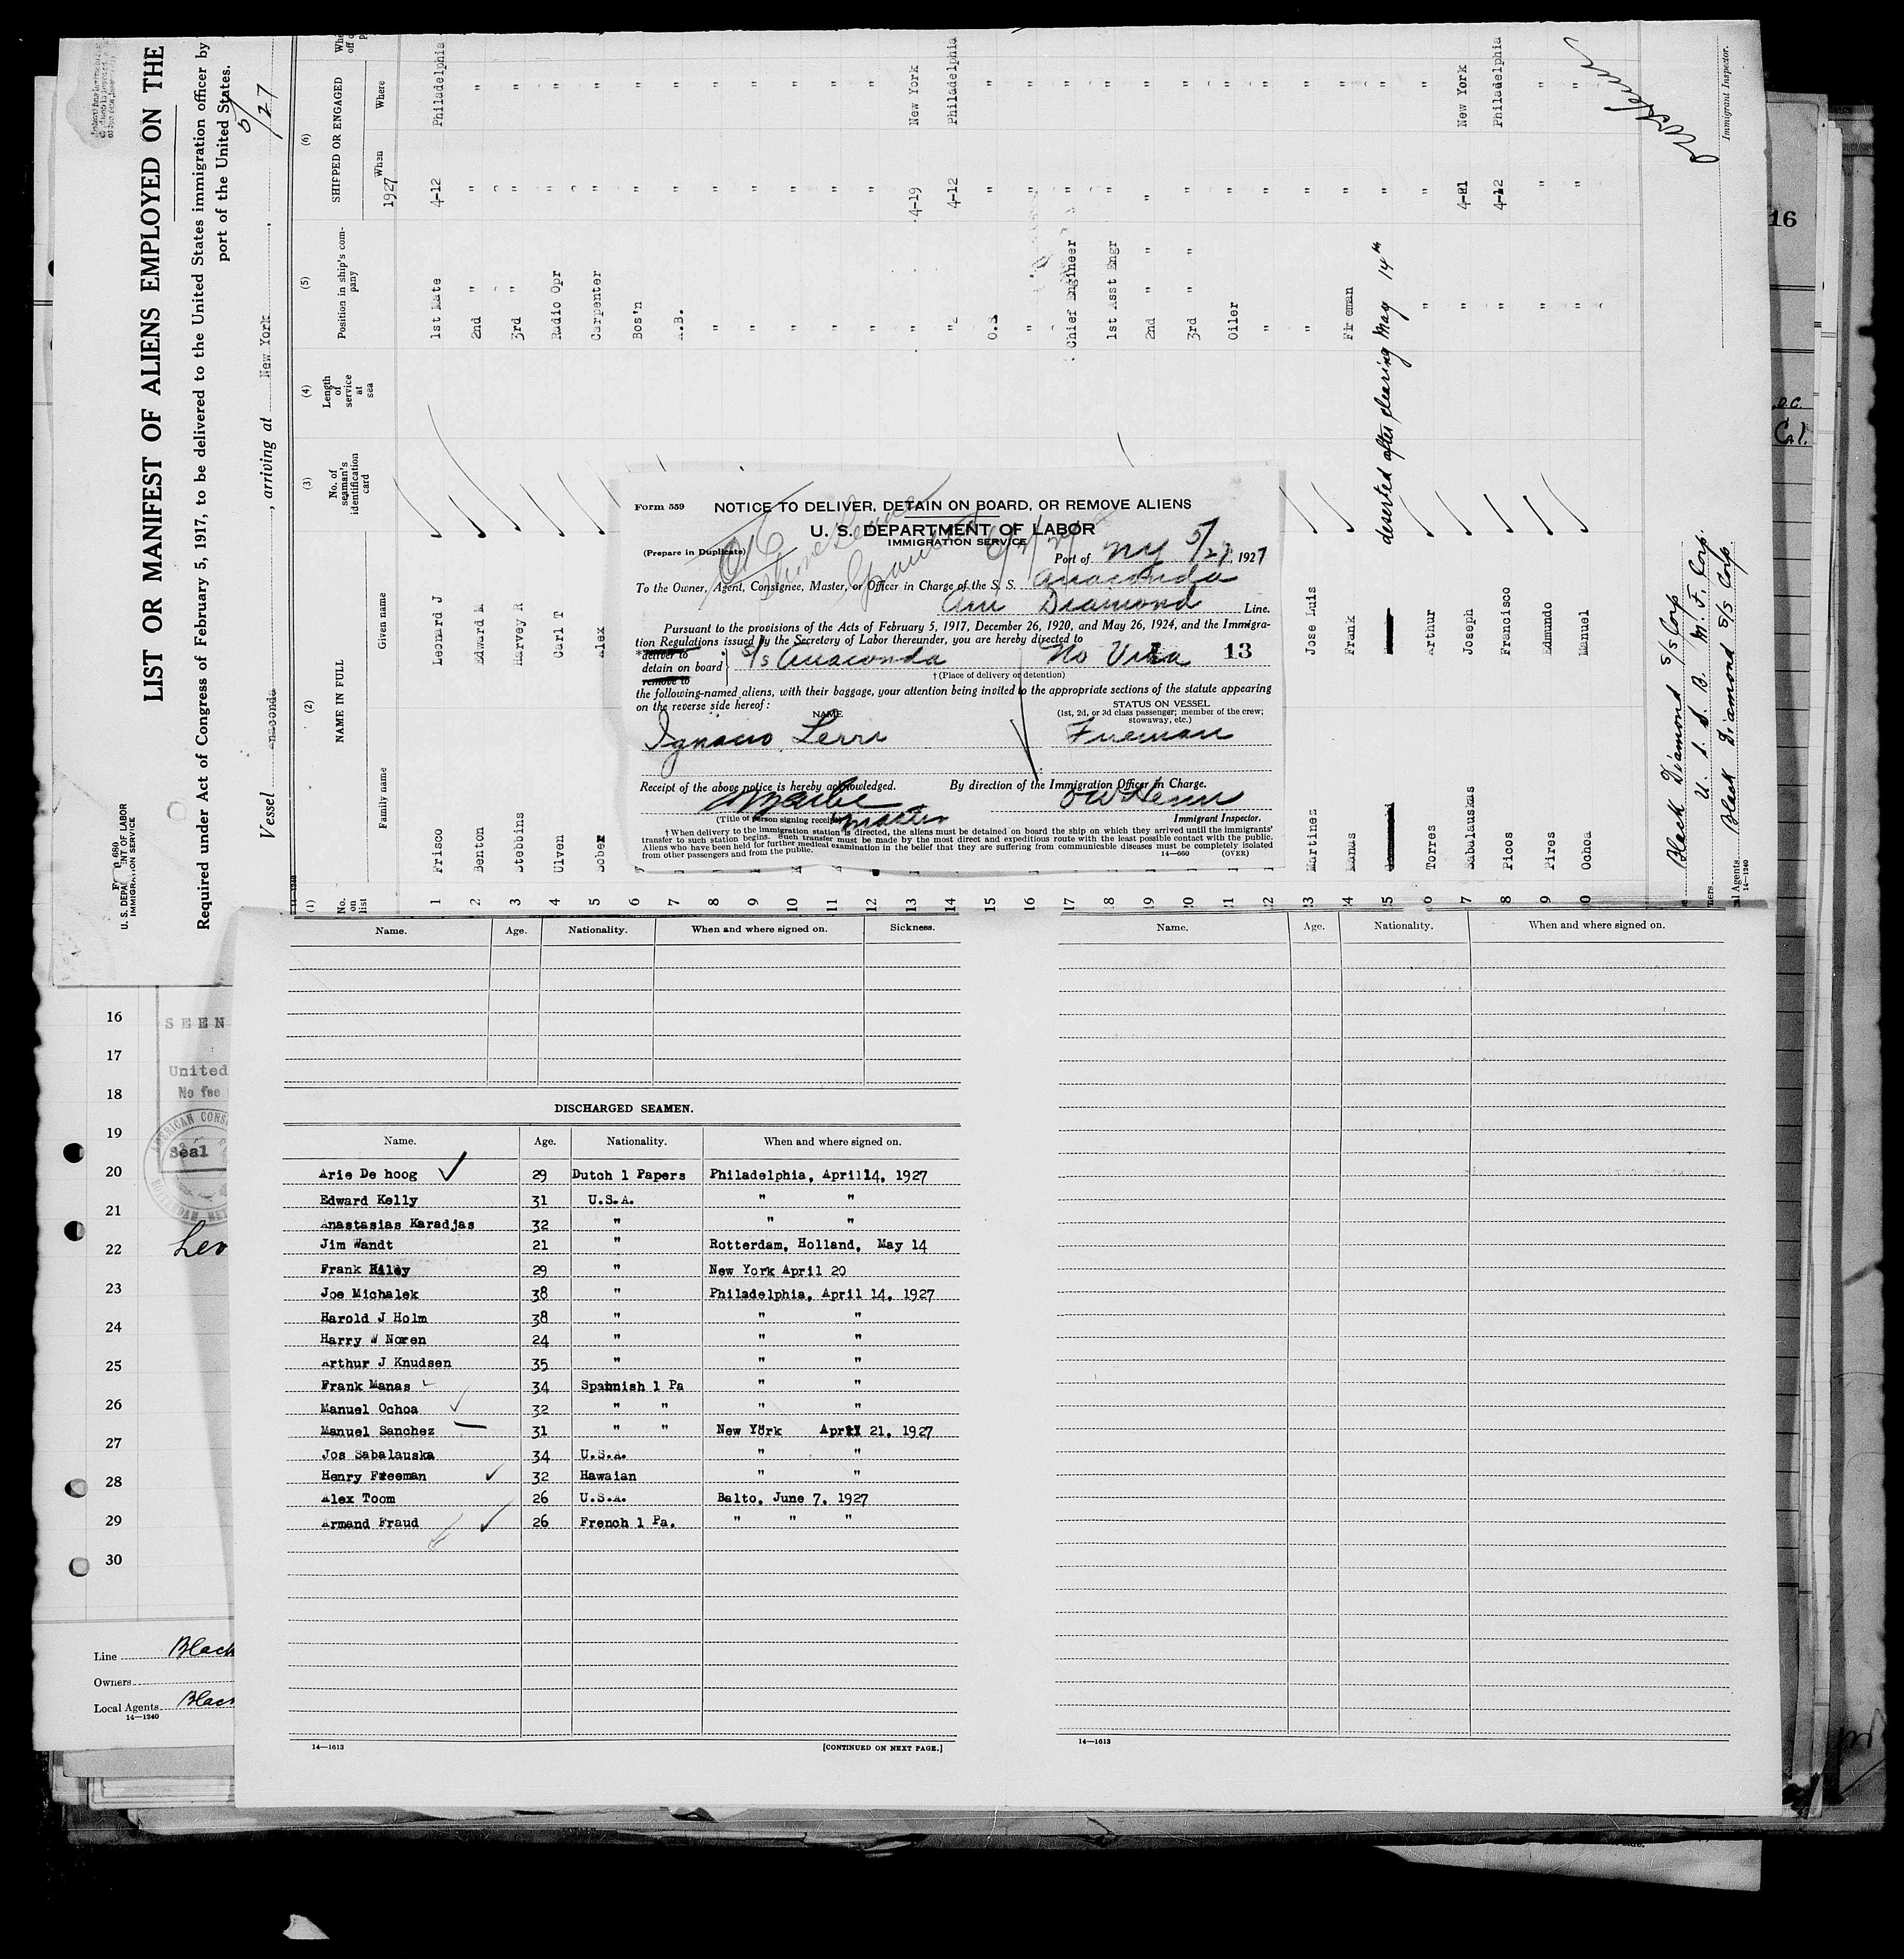 LIST OR MANIFEST OF ALIENS EMPLOYED ON THE
Required under Act of Congress of February 5, 1917, to be delivered to the United States immigration officer by
port of the United States.
5/27
Vessel Anaconda, arriving at New York,
U. S. DEPARTMENT OF LABOR
IMMIGRATION SERVICE
(1) (2) (3) (4) (5) (6)
No. on list
NAME IN FULL
Family name Given name
No. of seaman's identification card
Length of service at sea
Position in ship's company
SHIPPED OR ENGAGED
When Where
1927
1 Frisco Leonard J 1st Mate 4-12 Philadelphia
2 Benton Edward 2nd " " "
3 Stebbins Harvey R 3rd " " "
4 Ulven Carl T Radio Opr " "
5 Sober Alex Carpenter " "
6 Bos'n " "
7 A.B. " "
8 " " "
9 " " "
10 " " "
11 " " "
12 " " "
13 " 4-19 New York
14 " 4-12 Philadelphia
15 O.S. " "
16 " " "
17 Chief Engineer " "
18 1st Asst Engr " "
19 2nd " " " "
20 3rd " " " "
21 Oiler " "
22 " " "
23 Martinez Jose Luis " " "
24 Manas Frank Fireman " "
25 deserted after clearing May 14th " "
26 Torres Arthur " " "
27 Sabalauskas Joseph " 4-21 New York
28 Picos Francisco " 4-12 Philadelphia
29 Pires Edmundo " " "
30 Ochoa Manuel " " "
Immigrant Inspector.
Black Diamond S/S Corp
U. S. S. B. M. F. Corp.
Black Diamond S/S Corp.
14—1240
Form 559
NOTICE TO DELIVER, DETAIN ON BOARD, OR REMOVE ALIENS
U. S. DEPARTMENT OF LABOR
IMMIGRATION SERVICE
(Prepare in Duplicate)
Port of NY 5/27, 1927
To the Owner, Agent, Consignee, Master, or Officer in Charge of the S. S. Anaconda
Am Diamond Line.
Pursuant to the provisions of the Acts of February 5, 1917, December 26, 1920, and May 26, 1924, and the Immigra-
tion Regulations issued by the Secretary of Labor thereunder, you are hereby directed to
*deliver to
detain on board
remove to
S/S Anaconda No Visa 13
† (Place of delivery or detention)
the following-named aliens, with their baggage, your attention being invited to the appropriate sections of the statute appearing
on the reverse side hereof:
NAME
STATUS ON VESSEL
(1st, 2d, or 3d class passenger; member of the crew;
stowaway, etc.)
Ignacio Fireman
Receipt of the above notice is hereby acknowledged. By direction of the Immigration Officer in Charge.
master
(Title of person signing receipt) Immigrant Inspector.
† When delivery to the immigration station is directed, the aliens must be detained on board the ship on which they arrived until the immigrants'
transfer to such station begins. Such transfer must be made by the most direct and expeditious route with the least possible contact with the public.
Aliens who have been held for further medical examination in the belief that they are suffering from communicable diseases must be completely isolated
from other passengers and from the public. 14—660 (OVER)
16
D.C.
Cal.
Name. Age. Nationality. When and where signed on. Sickness.
DISCHARGED SEAMEN.
Name. Age. Nationality. When and where signed on.
Arie De hoog 29 Dutch 1 Papers Philadelphia, April14, 1927
Edward Kelly 31 U.S.A. " "
Anastasias Karadjas 32 " " "
Jim Wandt 21 " Rotterdam, Holland, May 14
Frank Riley 29 " New York April 20
Joe Michalek 38 " Philadelphia, April 14, 1927
Harold J Holm 38 " " "
Harry W Noren 24 " " "
Arthur J Knudsen 35 " " "
Frank Manas 34 Spahnish 1 Pa " "
Manuel Ochoa 32 " " " "
Manuel Sanchez 31 " " New York April 21, 1927
Jos Sabalauska 34 U.S.A. " "
Henry Freeman 32 Hawaian " "
Alex Toom 26 U.S.A. Balto, June 7, 1927
Armand Fraud 26 French 1 Pa. " " "
14—1613 [CONTINUED ON NEXT PAGE.]
Name. Age. Nationality. When and where signed on.
14—1613
16
17
18
19
20
21
22
23
24
25
26
27
28
29
30
SEEN
United
No fee
AMERICAN CONS
Seal
Line Black
Owners
Local Agents Black
14—1240